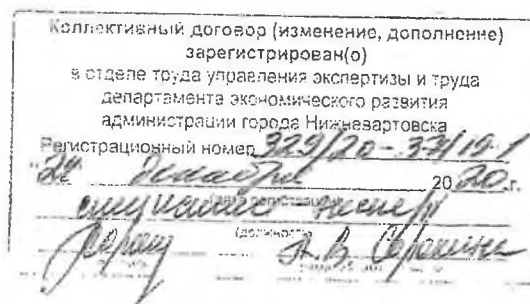 Коллективный договор (изменение, дополнение)
зарегистрирован(о)
в отделе труда управления экспертизы и труда
департамента экономического развития
администрации города Нижневартовска
Регистрационный номер 329/20-
" декабря 2020 г.
(дата регистрации)
эксперт
(должность)